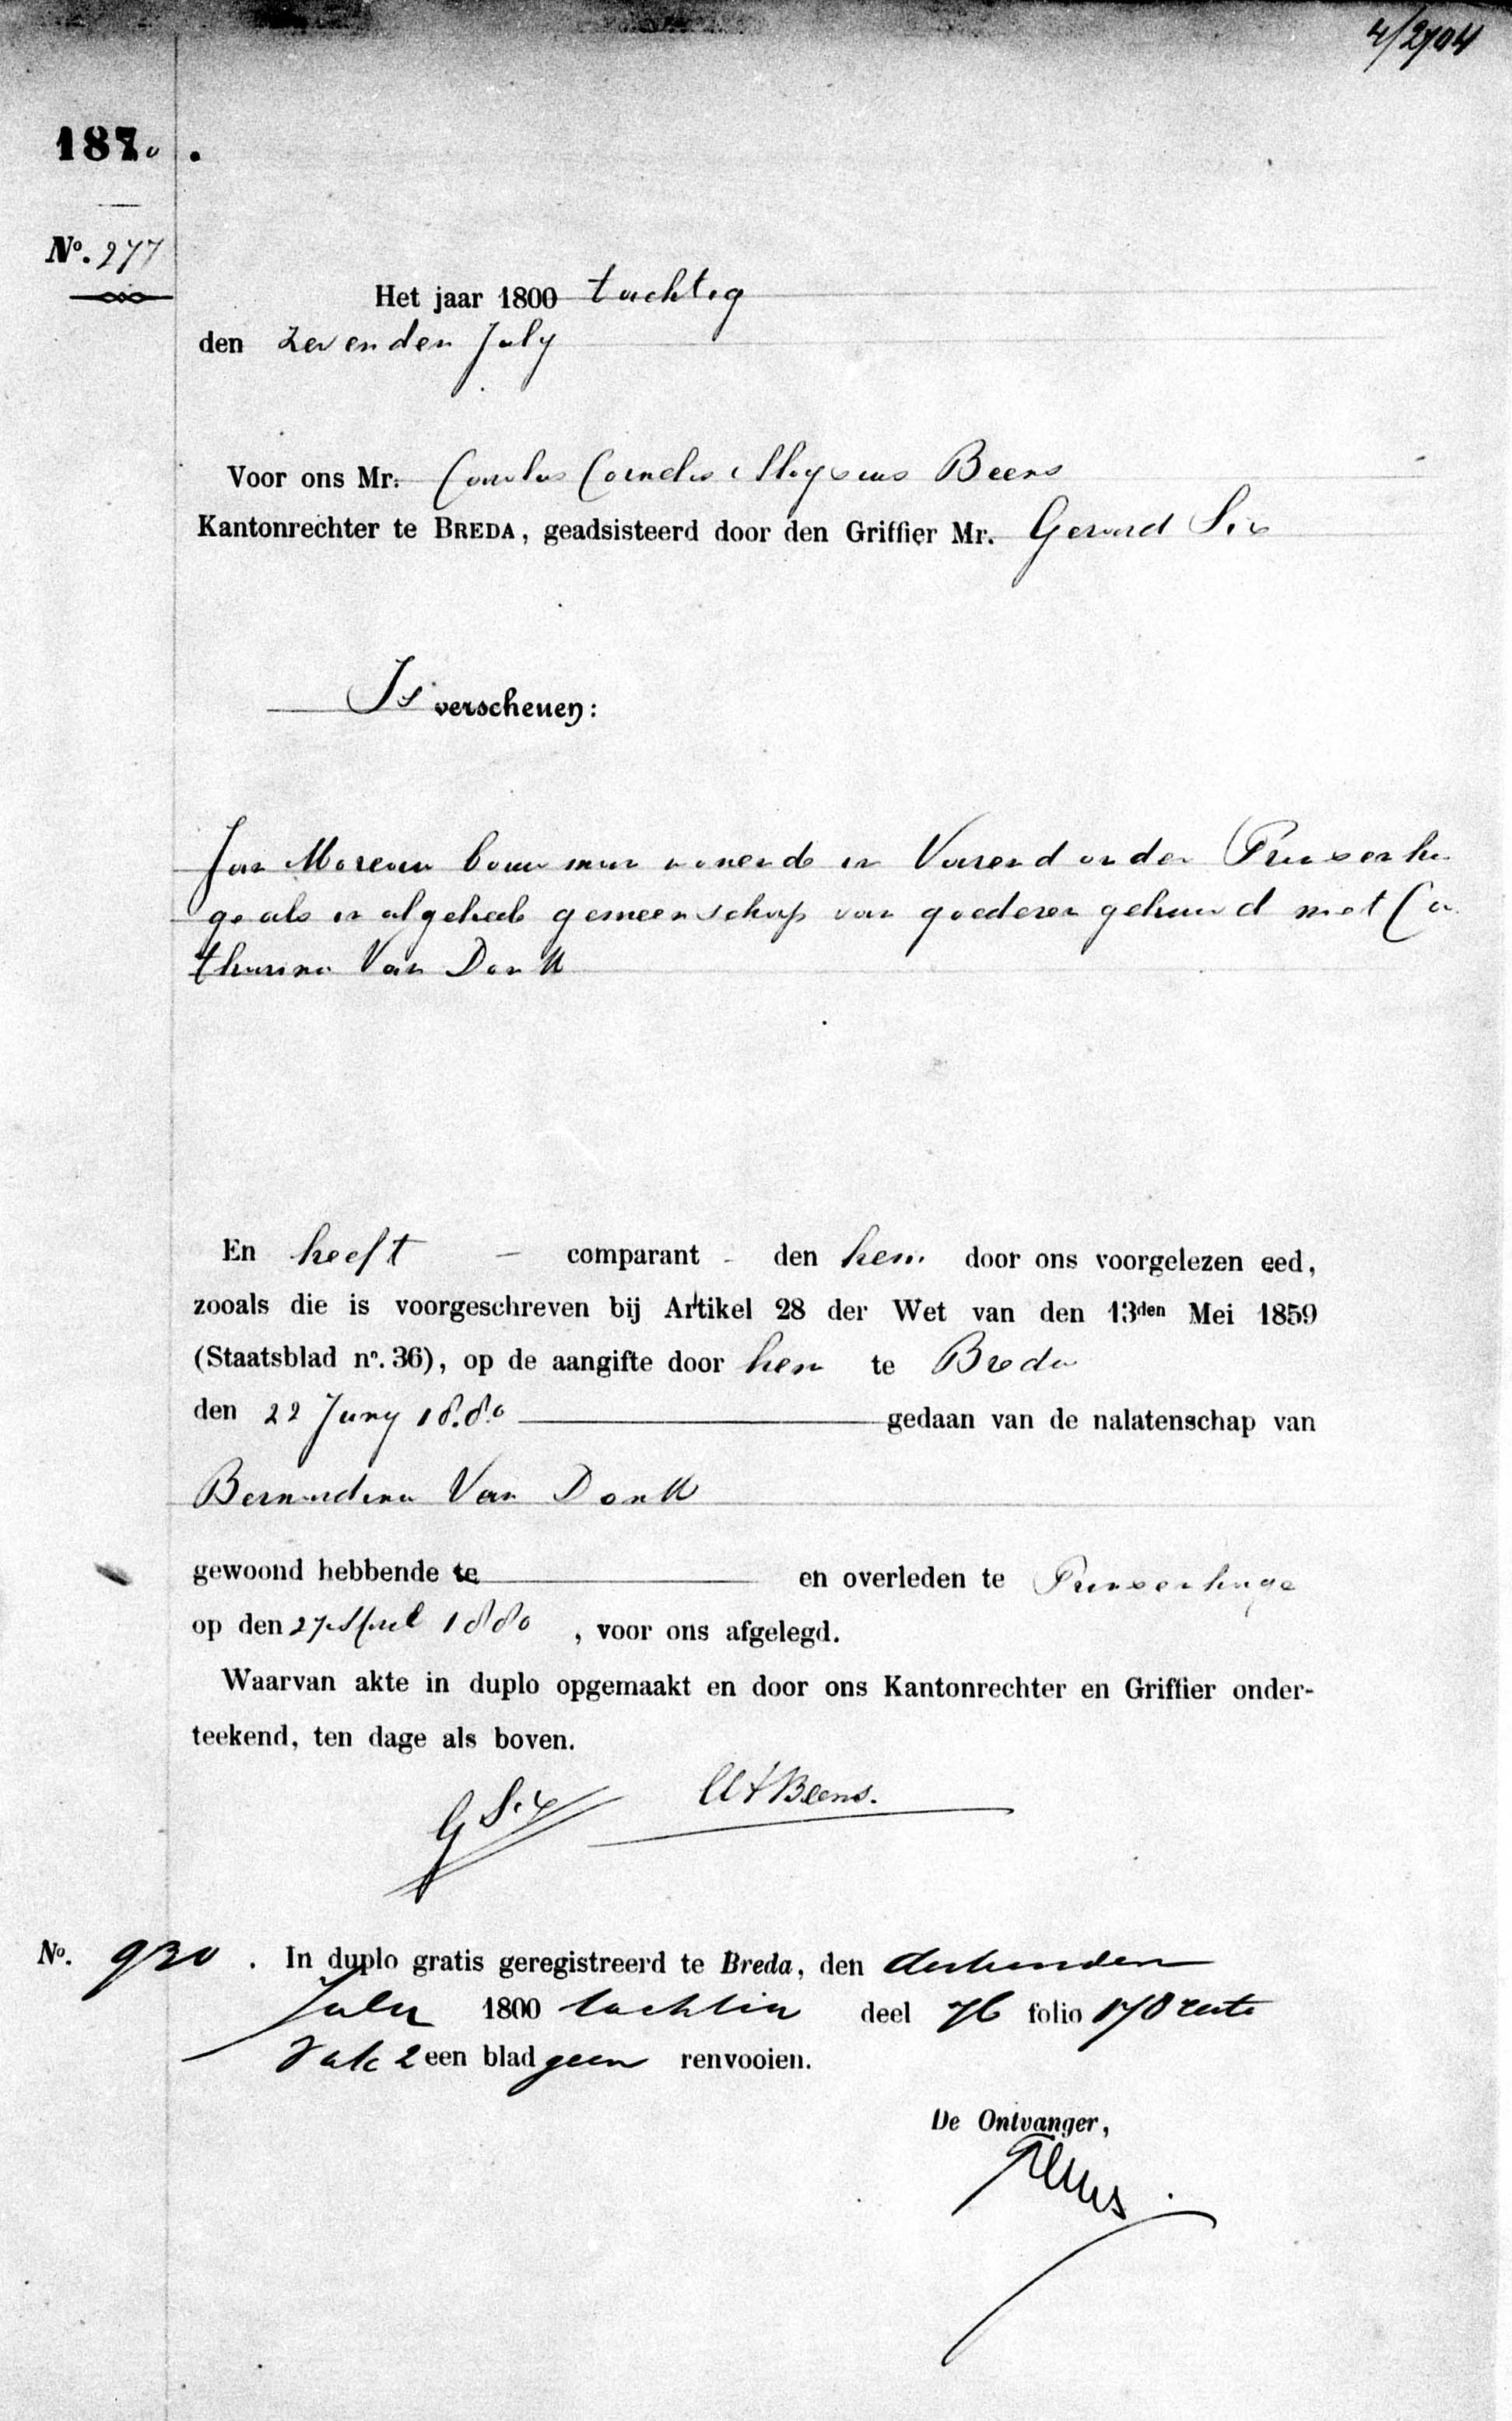 4/2904
1880.
No. 277
Het jaar 1800 tachtig
den zevenden July
Voor ons Mr. Carolus Cornelis Aloysius Beens
Kantonrechter te BREDA, geadsisteerd door den Griffier Mr. Gerard Six
Is verschenen:
Jan Moreau bouwman wonende in Vaarend onder Princenha
ge als in algeheele gemeenschap van goederen gehuwd met Ca
tharina Van Donk
En heeft comparant den hem door ons voorgelezen eed,
zooals die is voorgeschreven bij Artikel 28 der Wet van den 13den Mei 1859
(Staatsblad no. 36), op de aangifte door hem te Breda
den 22 Juny 1880 gedaan van de nalatenschap van
Bernardina Van Donk
gewoond hebbende te en overleden te Princenhage
op den 27 April 1880, voor ons afgelegd.
Waarvan akte in duplo opgemaakt en door ons Kantonrechter en Griffier onder-
teekend, ten dage als boven.
G Six Beens.
No. 930. In duplo gratis geregistreerd te Breda, den dertienden
July 1800 tachtig deel 76 folio 170 recto
vak 2 een blad geen renvooien.
De Ontvanger,